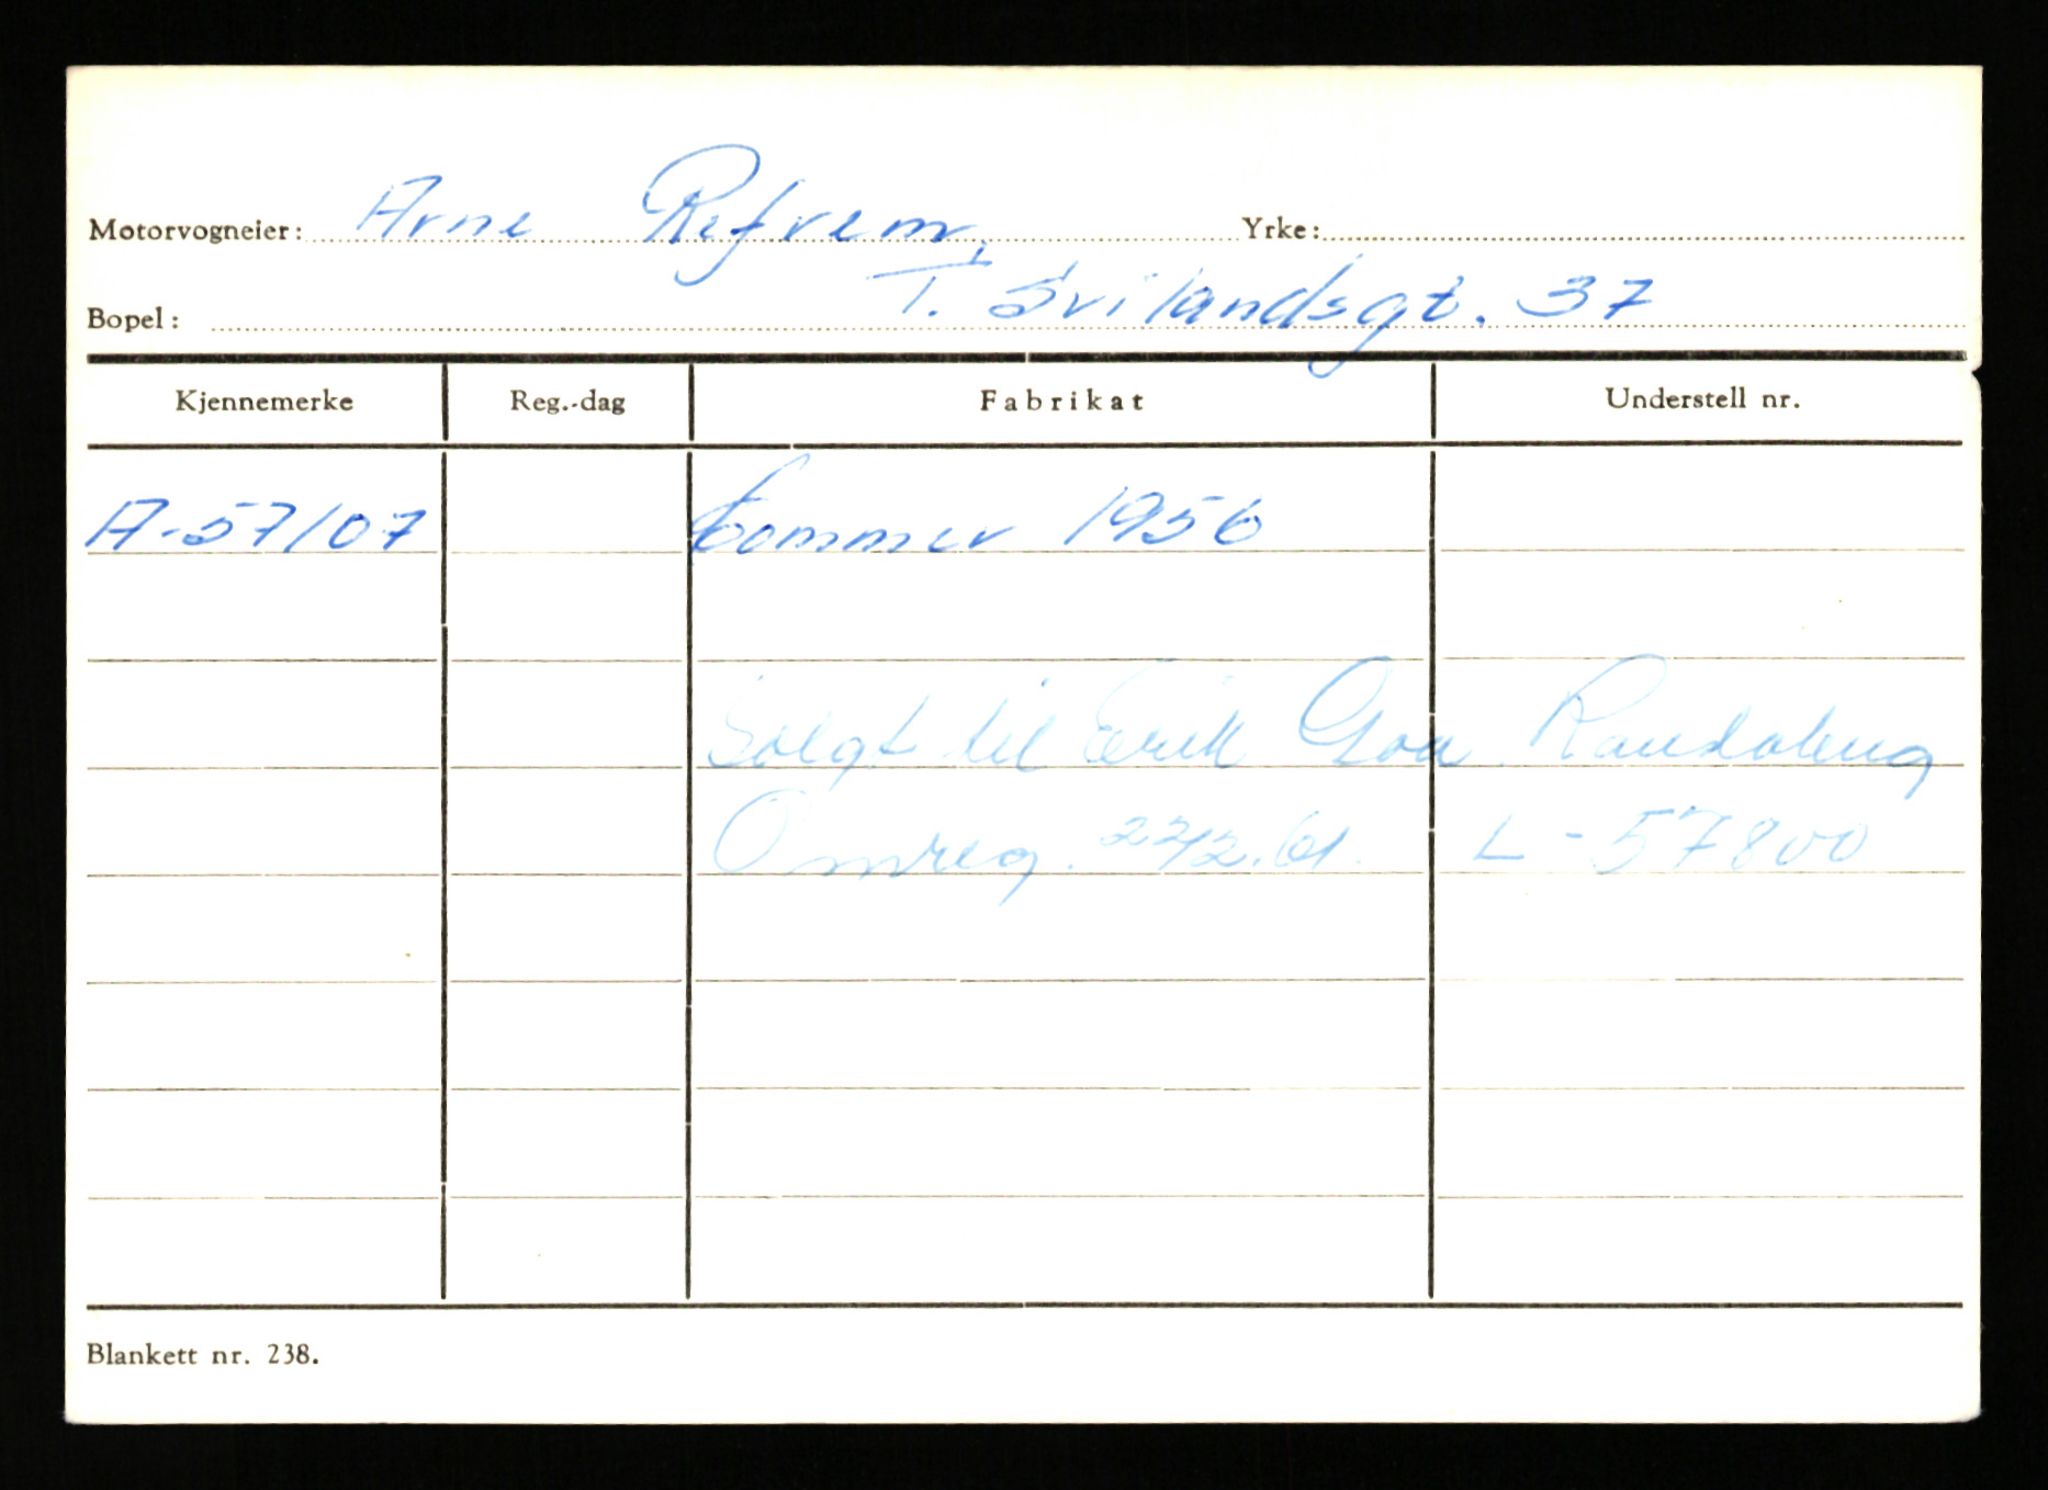 Motorvogneier: Arne Refvem, Yrke:
Bopel: T. Svilandsgt. 37
Kjennemerke Reg.-dag Fabrikat Understell nr.
A-57107 Commer 1956
Solgt til Erik Goa Randaberg
Omreg. 22/2.61. L-57800
Blankett nr. 238.